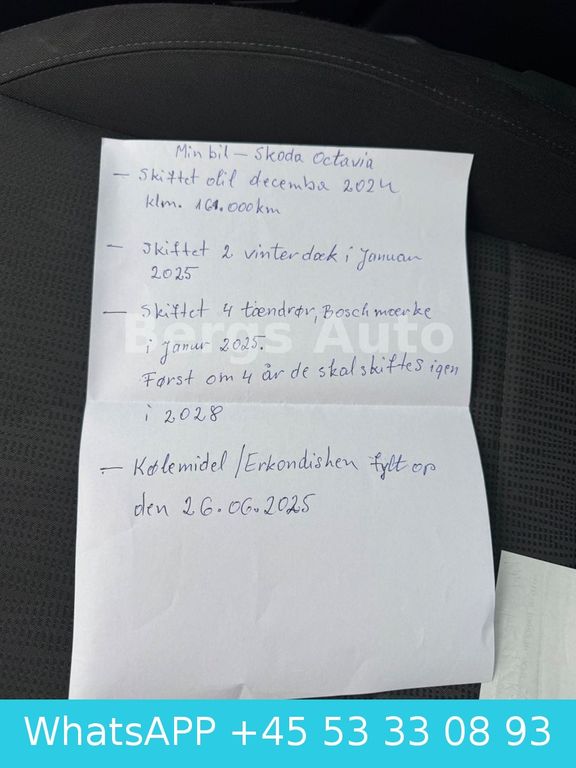 Min bil – Skoda Octavia
– Skiftet olil decemba 2024
klm. 161.000km
– Skiftet 2 vinterdæk i Januar
2025
– Skiftet 4 tændrør, Bosch mærke
Bergs Auto
i Janur 2025.
Først om 4 år de skal skiftes igen
i 2028
– Kølemidel/Erkondishen fylt op
den 26.06.2025
WhatsAPP +45 53 33 08 93